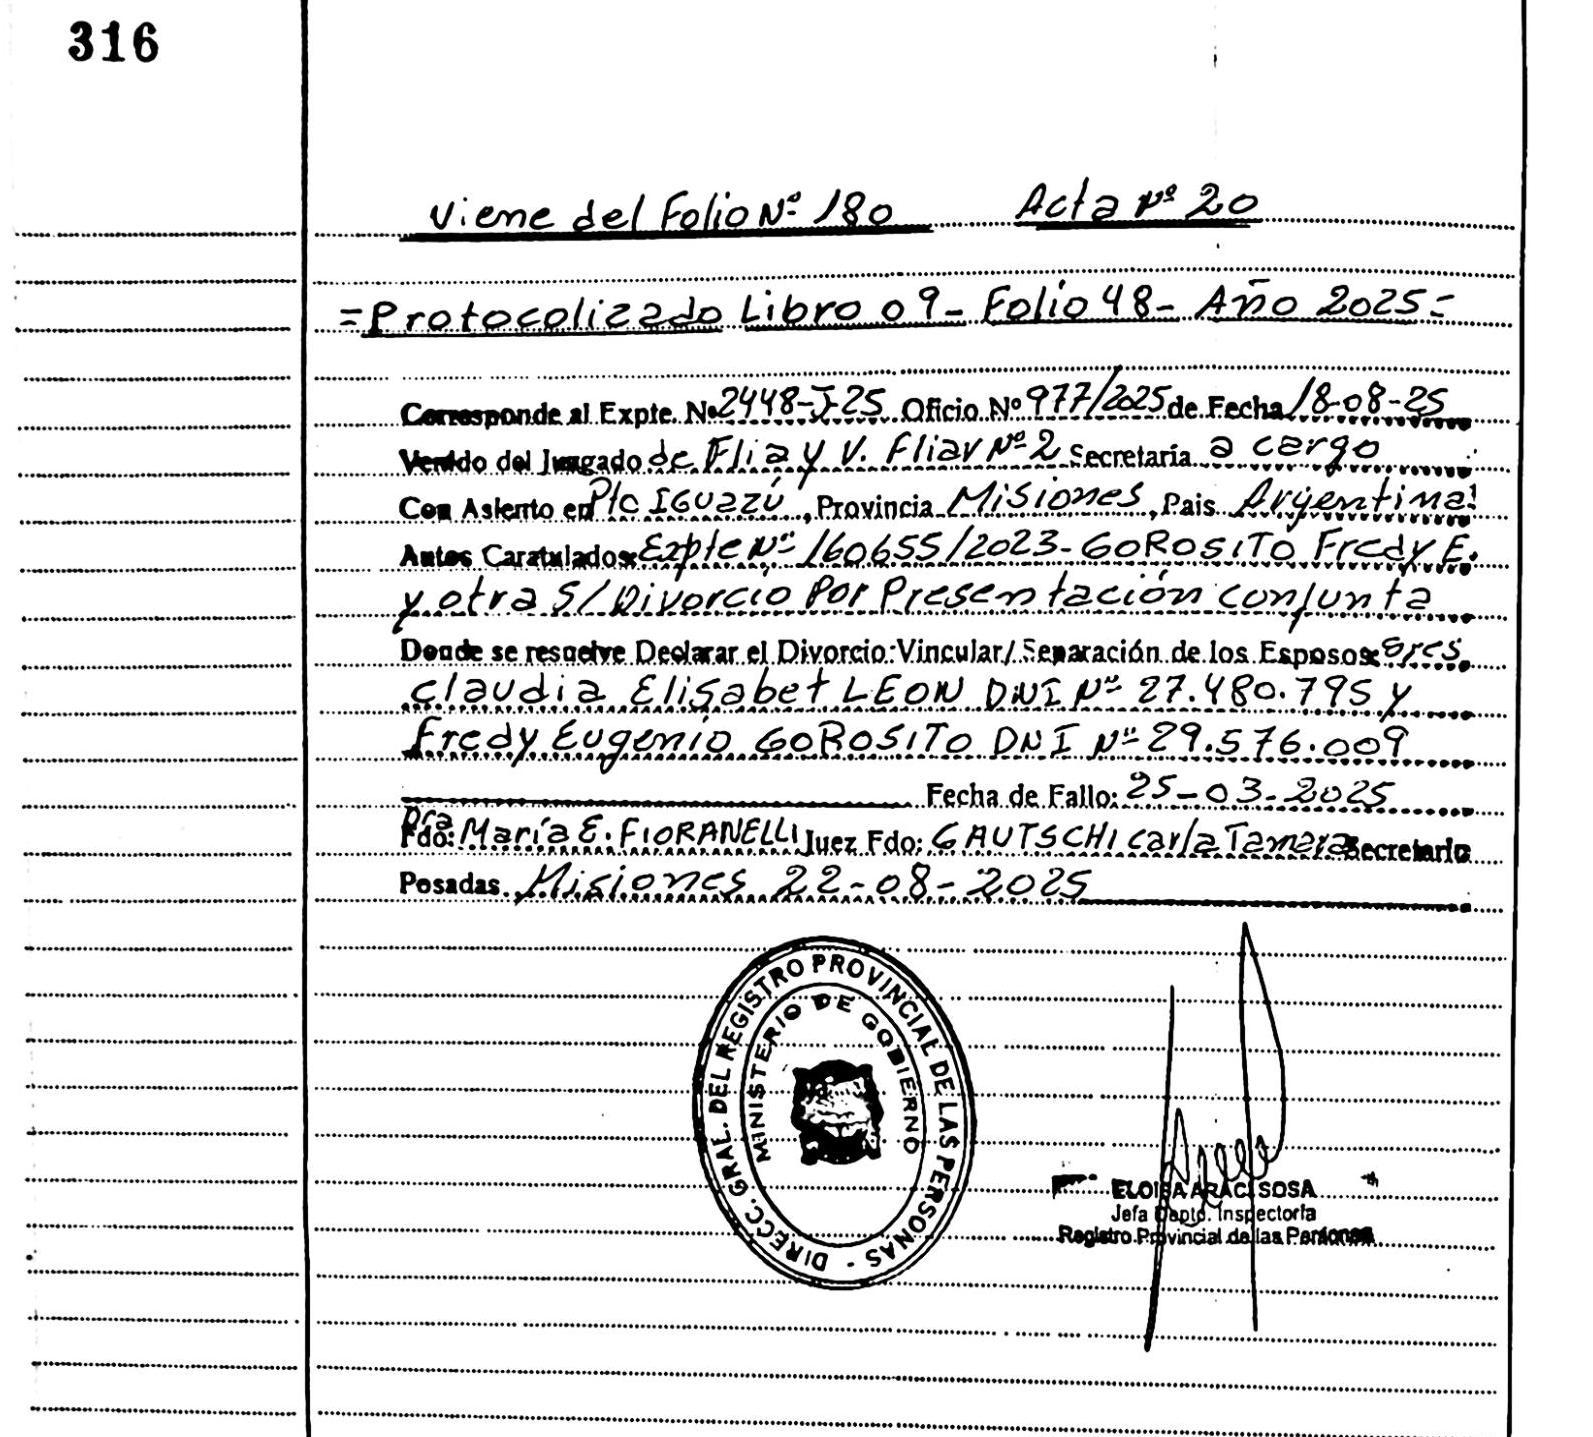 316
Viene del Folio Nº 180 Acta Nº 20
=Protocolizado Libro 09- Folio 48- Año 2025=
Corresponde al Expte. Nº 2448-J-25 Oficio Nº 977/2025 de Fecha 18-08-25
Venido del Juzgado de Flia y V. Fliar Nº 2 Secretaria a cargo
Con Asiento en Pto IGUAZÚ, Provincia Misiones, Pais Argentina
Autos Caratulados: Expte Nº 160655/2023- GOROSITO Fredy E.
y otra S/ Divorcio Por Presentación conjunta
Donde se resuelve Declarar el Divorcio Vincular/ Separación de los Esposos: Sres
Claudia Elisabet LEON DNI Nº 27.480.795 y
Fredy Eugenio GOROSITO DNI Nº 29.576.009
Fecha de Fallo: 25-03-2025
Fdo: Dra María E. FIORANELLI Juez Fdo: GAUTSCHI Carla Tamara Secretario
Posadas. Misiones 22-08-2025
DIRECC. GRAL. DEL REGISTRO PROVINCIAL DE LAS PERSONAS -
MINISTERIO DE GOBIERNO
ELOISA ARACI SOSA
Jefa Dpto. Inspectoría
Registro Provincial de las Personas